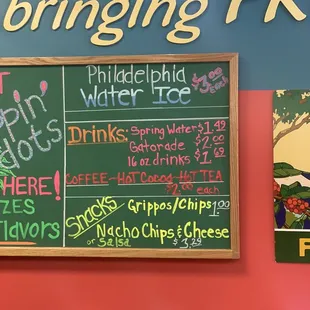 bringing
Philadelphia
Water Ice $3.00 each
Drinks: Spring Water $1.49
Gatorade $2.00
16 oz drinks $1.69
COFFEE - HOT Cocoa - HOT TEA
$2.00 each
Snacks Grippos/Chips 1.00
Nacho Chips & Cheese
or Salsa $3.29
pin'
Dots
HERE!
ZES
lavors
F